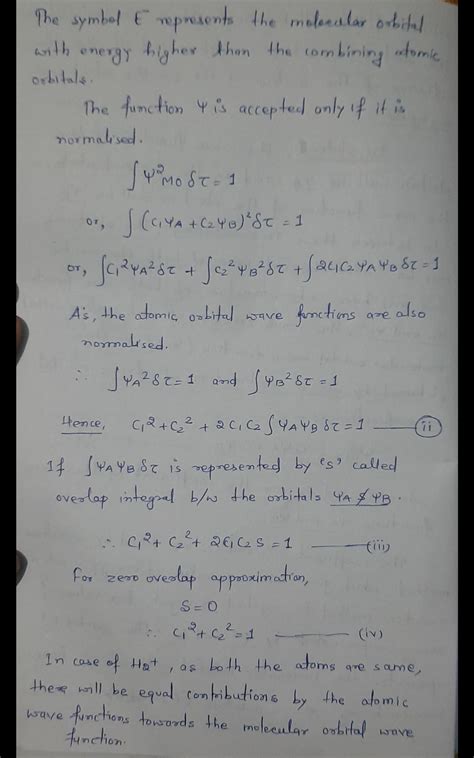 The symbol E represents the molecular orbital
with energy higher than the combining atomic
orbitals.
The function Ψ is accepted only if it is
normalised.
∫Ψ²MO δτ = 1
or, ∫(C₁ΨA + C₂ΨB)² δτ = 1
or, ∫C₁²ΨA² δτ + ∫C₂²ΨB² δτ + ∫2C₁C₂ΨAΨB δτ = 1
As, the atomic orbital wave functions are also
normalised.
∴ ∫ΨA² δτ = 1 and ∫ΨB² δτ = 1
Hence, C₁² + C₂² + 2C₁C₂∫ΨAΨB δτ = 1 —— (ii)
If ∫ΨAΨB δτ is represented by 's' called
overlap integral b/w the orbitals ΨA & ΨB.
∴ C₁² + C₂² + 2C₁C₂S = 1 —— (iii)
For zero overlap approximation,
S = 0
∴ C₁² + C₂² = 1 —— (iv)
In case of H₂⁺, as both the atoms are same,
there will be equal contributions by the atomic
wave functions towards the molecular orbital wave
function.